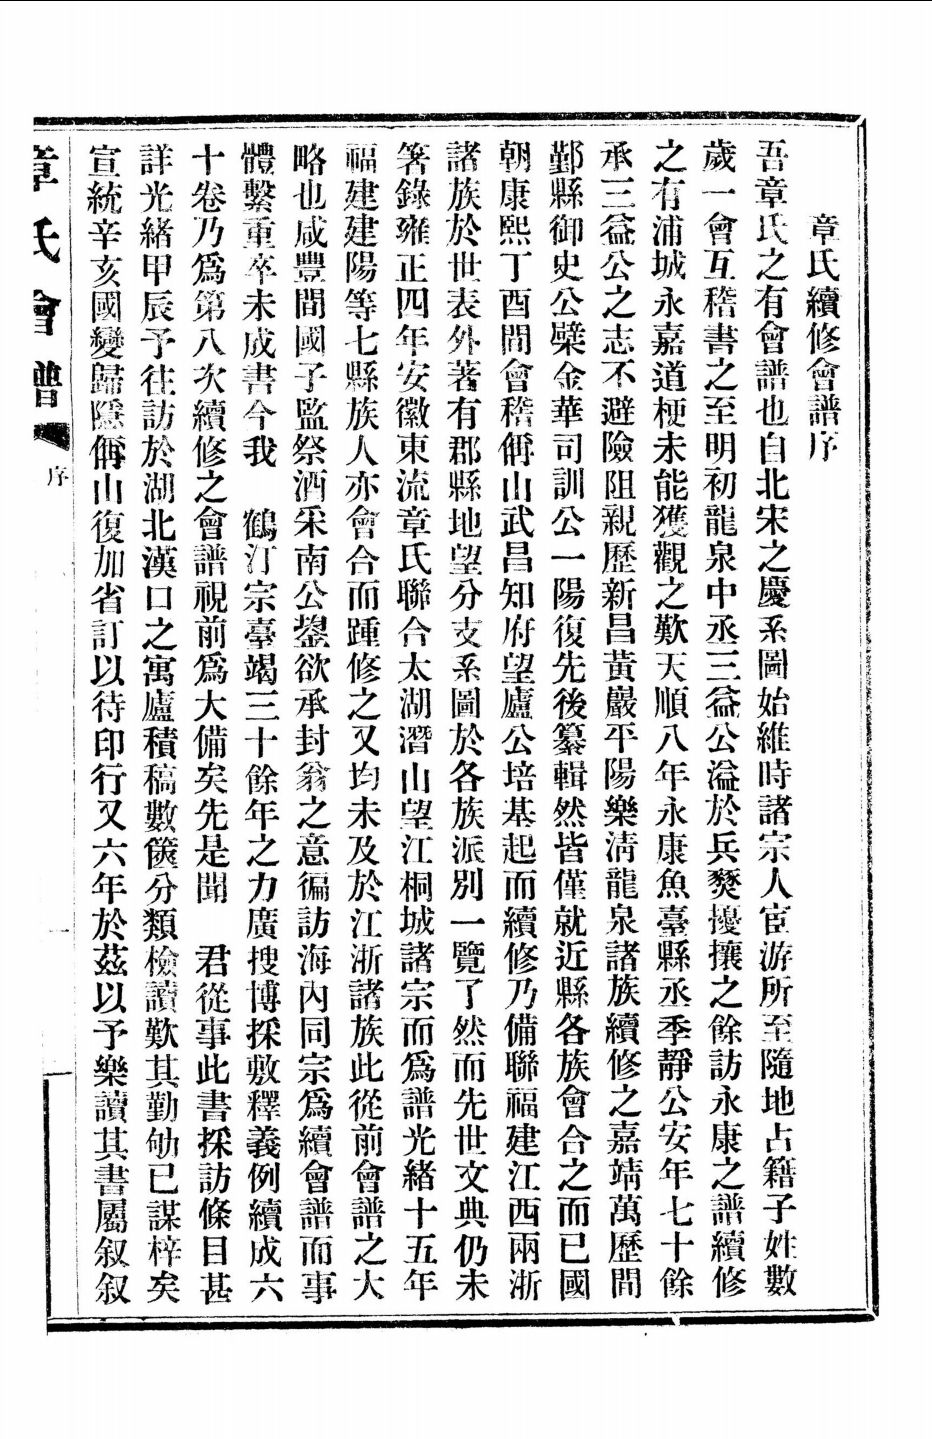 章氏續修會譜序
吾章氏之有會譜也自北宋之慶系圖始維時諸宗人宦游所至隨地占籍子姓數
歲一會互稽書之至明初龍泉中丞三益公溢於兵燹擾攘之餘訪永康之譜續修
之有浦城永嘉道梗未能獲觀之歎天順八年永康魚臺縣丞季靜公安年七十餘
承三益公之志不避險阻親歷新昌黃巖平陽樂清龍泉諸族續修之嘉靖萬歷間
鄞縣御史公檗金華司訓公一陽復先後纂輯然皆僅就近縣各族會合之而已國
朝康熙丁酉間會稽偁山武昌知府望廬公培基起而續修乃備聯福建江西兩浙
諸族於世表外著有郡縣地望分支系圖於各族派別一覽了然而先世文典仍未
箸錄雍正四年安徽東流章氏聯合太湖潛山望江桐城諸宗而爲譜光緒十五年
福建建陽等七縣族人亦會合而踵修之又均未及於江浙諸族此從前會譜之大
略也咸豐間國子監祭酒采南公鋆欲承封翁之意徧訪海內同宗爲續會譜而事
體繫重卒未成書今我　鶴汀宗臺竭三十餘年之力廣搜博採敷釋義例續成六
十卷乃爲第八次續修之會譜視前爲大備矣先是聞　君從事此書採訪條目甚
詳光緒甲辰予往訪於湖北漢口之寓廬積稿數篋分類檢讀歎其勤劬已謀梓矣
宣統辛亥國變歸隱偁山復加省訂以待印行又六年於茲以予樂讀其書屬叙叙
章氏會譜
序